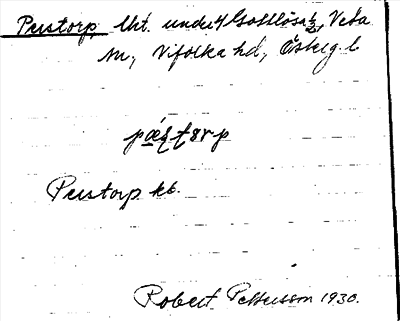 Perstorp, lht. under 4 Gottlösa 2, Veta
sn, Vifolka hd, Österg. l.
pæ̂ʂtɵrp
Perstorp kb.
Robert Pettersson 1930.